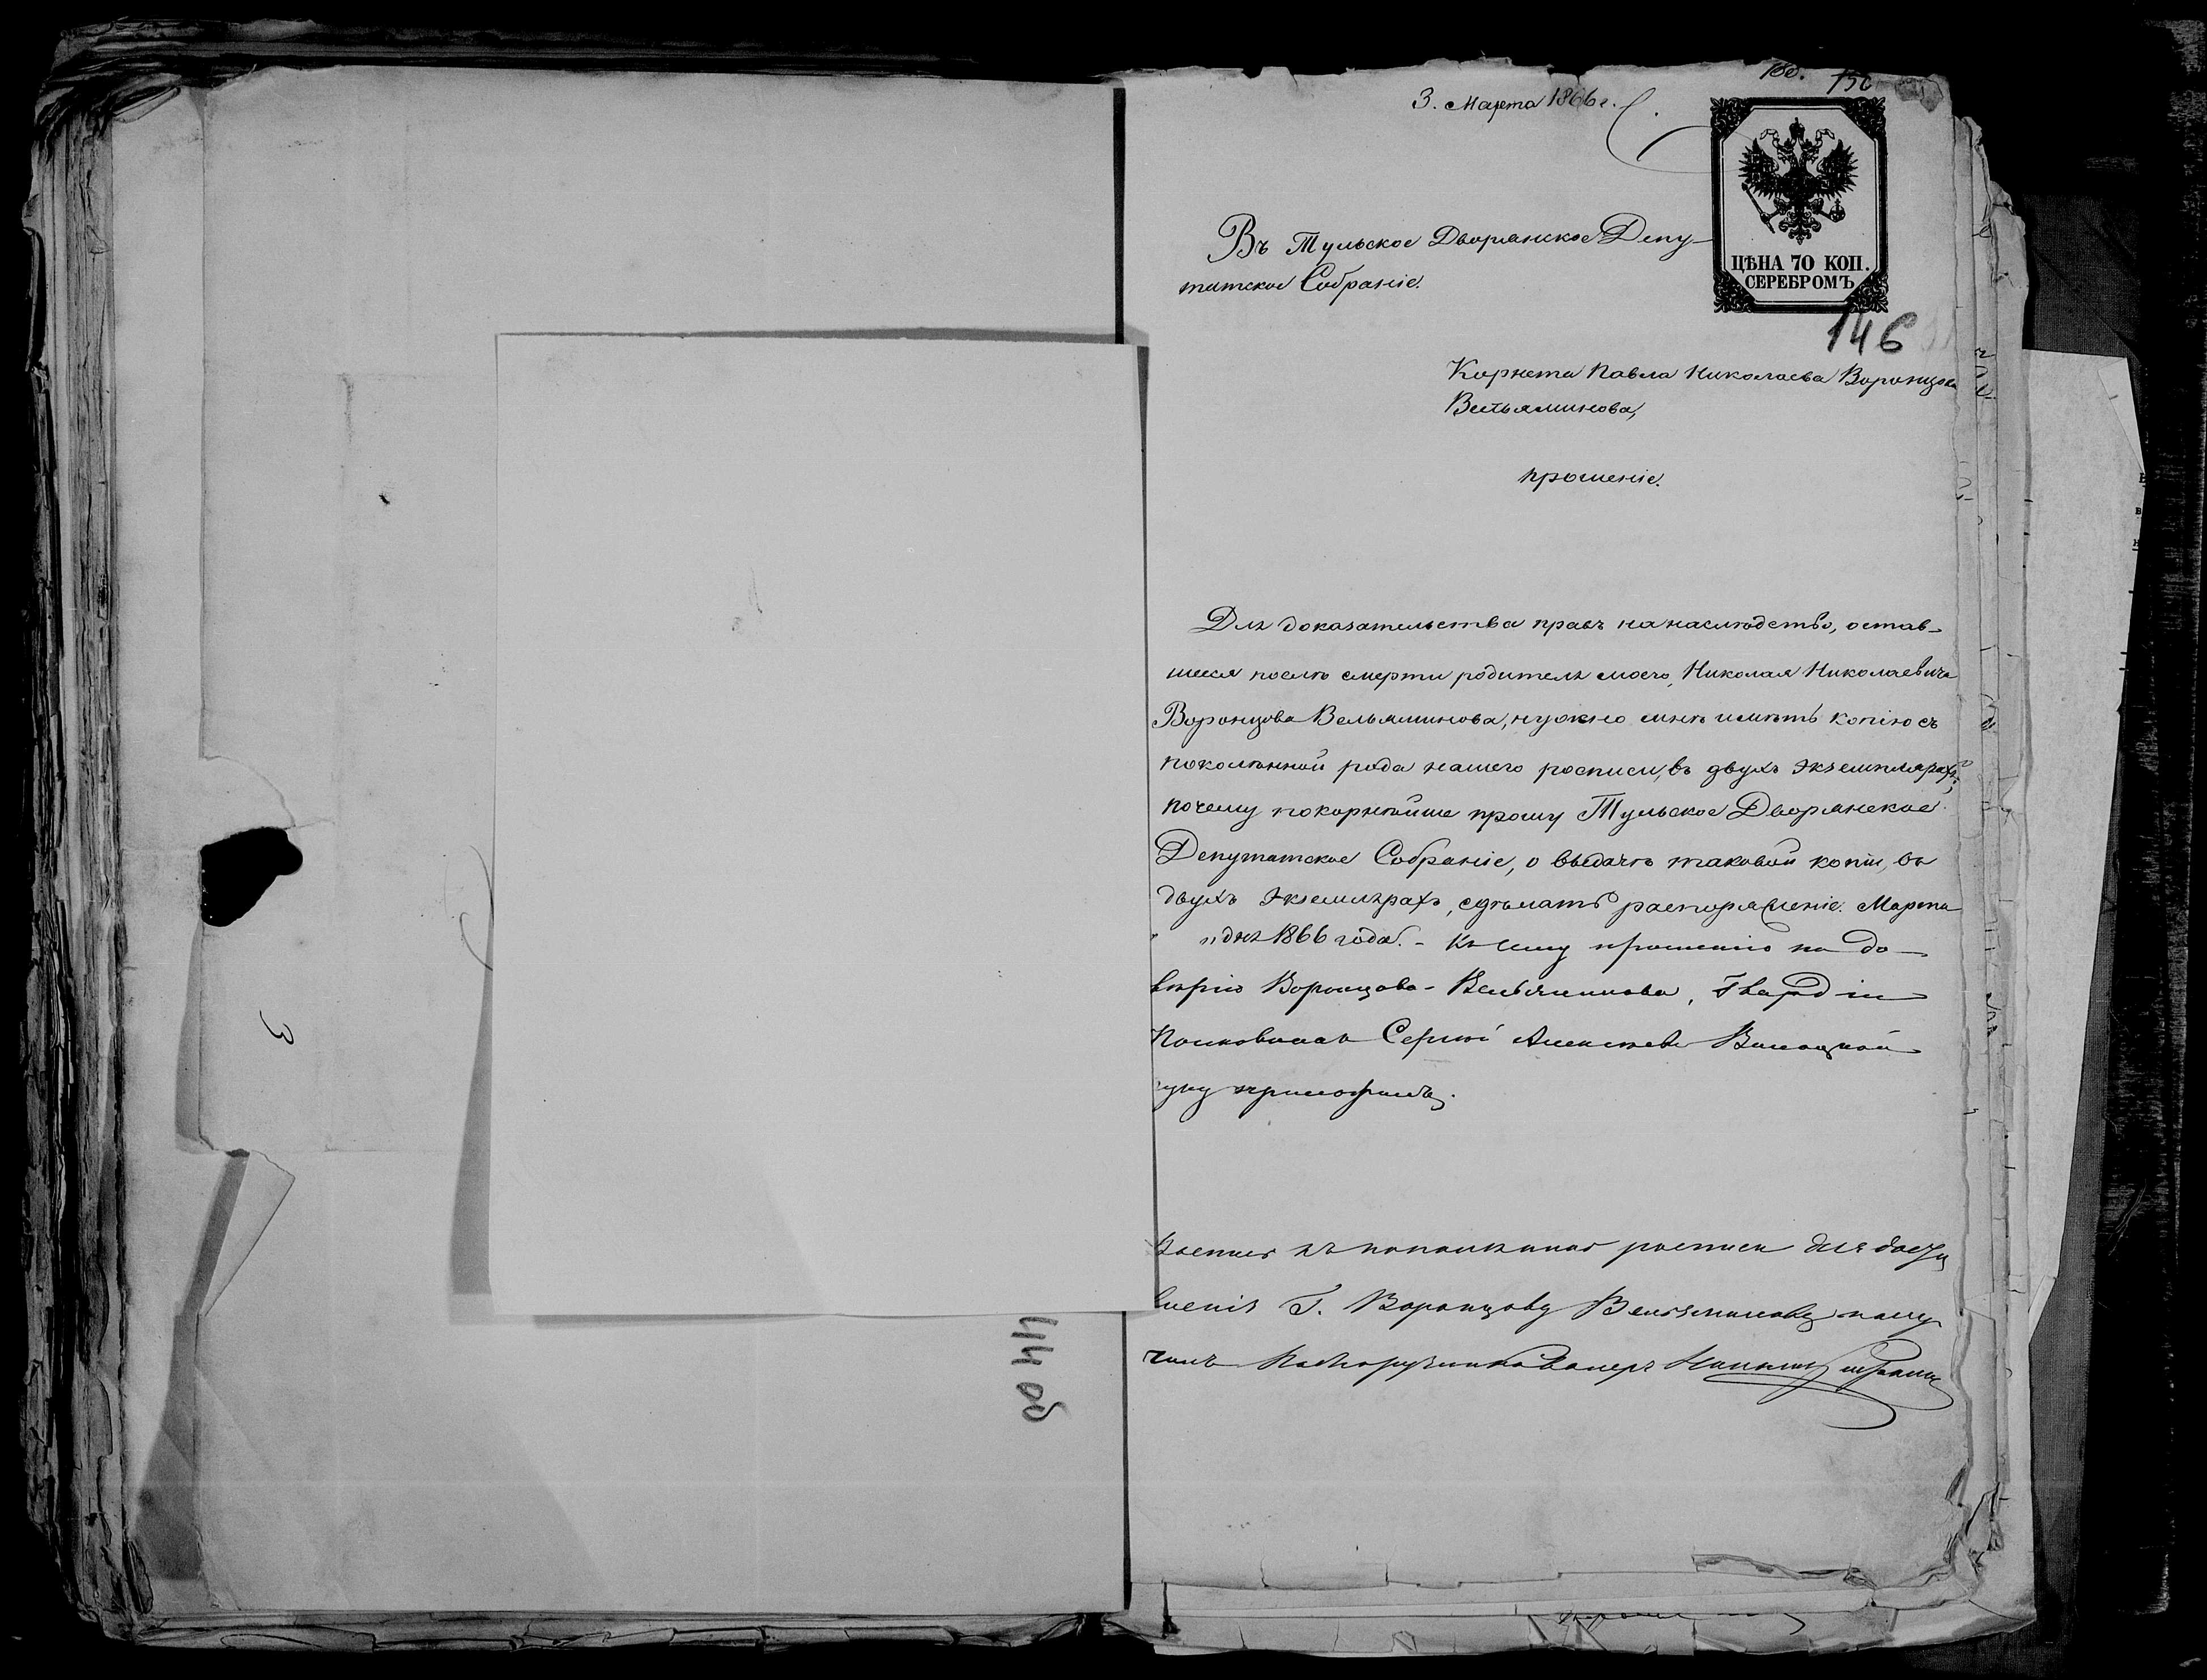 3. Марта 1866 г.
150.
ЦѢНА 70 КОП.
СЕРЕБРОМЪ
146
Въ Тульское Дворянское Депу-
татское Собраніе.
Корнета Павла Николаева Воронцова
Вельяминова,
прошеніе.
Для доказательства правъ на наслѣдство, остав-
шееся послѣ смерти родителя моего, Николая Николаевича
Воронцова Вельяминова, нужно мнѣ имѣть копію съ
поколѣнной рода нашего росписи, въ двухъ экземплярахъ;
почему покорнѣйше прошу Тульское Дворянское
Депутатское Собраніе, о выдачѣ таковой копіи, въ
двухъ экземплярахъ, сдѣлать распоряженіе. Марта
" дня 1866 года. - Къ сему прошенію по до-
вѣрію Воронцова-Вельяминова, Гвардіи
Полковникъ Сергѣй Алексѣевъ
руку приложилъ.
росписи для
Г. Воронцову Вельяминову полу-
чилъ
44 об
3